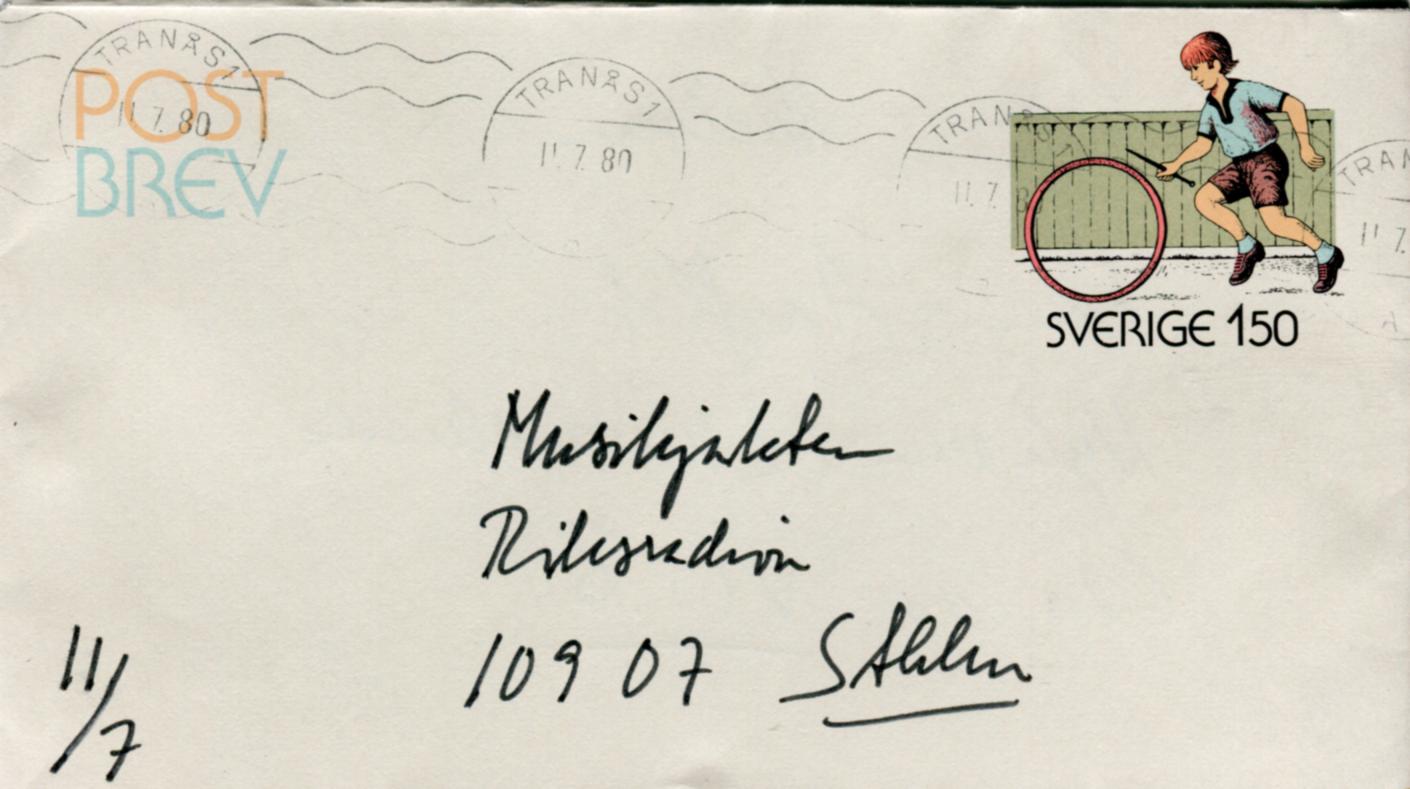 TRANÅS 1
11.7.80
POST
BREV
TRANÅS 1
11.7.80
TRANÅS 1
11.7.8
TRAN
11.7.
SVERIGE 150
Musikjakten
Riksradion
109 07 Sthlm
11/7